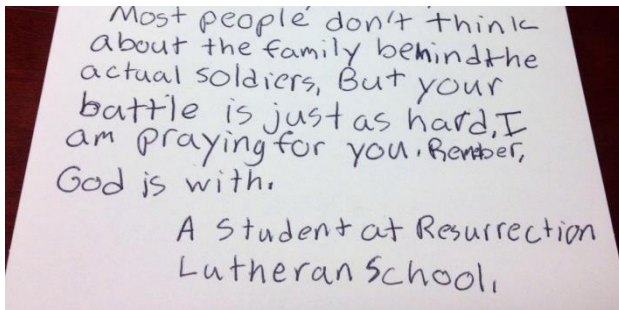 Most people don't think
about the family behind the
actual soldiers, But your
battle is just as hard, I
am praying for you. Rember,
God is with.
A Student at Resurrection
Lutheran School.